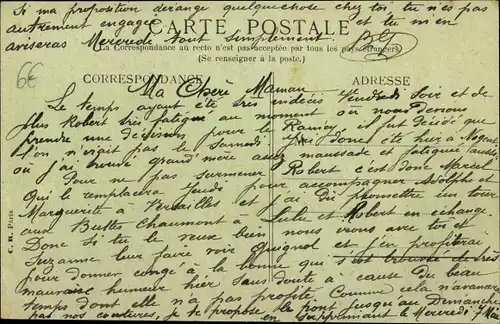 Si ma proposition dérange quelquechose chez toi, tu n'es pas
autrement engagée et tu m'en
CARTE POSTALE
aviseras Mercredi tout simplement.
La Correspondance au recto n'est pas acceptée par tous les pays étrangers.
(Se renseigner à la poste.)
6€
CORRESPONDANCE
ADRESSE
Ma Chère Maman
Le temps ayant été très indécis Vendredi Soir et de
plus Robert très fatigué au moment où nous devions
prendre une décision pour le Raincy, il fut décidé que
l'on n'irait pas le Samedi. J'ai donc été hier à Nogent
où j'ai trouvé grand'mère assez maussade et fatiguée aussi
Pour ne pas surmener Robert c'est donc Marcel
Qui le remplacera Jeudi pour accompagner Adolphe et
Marguerite à Versailles et j'ai pu permettre un tour
aux Buttes Chaumont à Lulu et Robert en échange
Donc si tu le veux bien nous irons avec toi et
Suzanne leur faire voir Guignol et j'en profiterai
pour donner congé à la bonne qui était de très
mauvaise humeur hier sans doute à cause du beau
temps dont elle n'a pas profité Comme cela n'avancera
pas nos coutures, je te propose le pont jusqu'au Dimanche
en supprimant le Mercredi
C. R. Paris